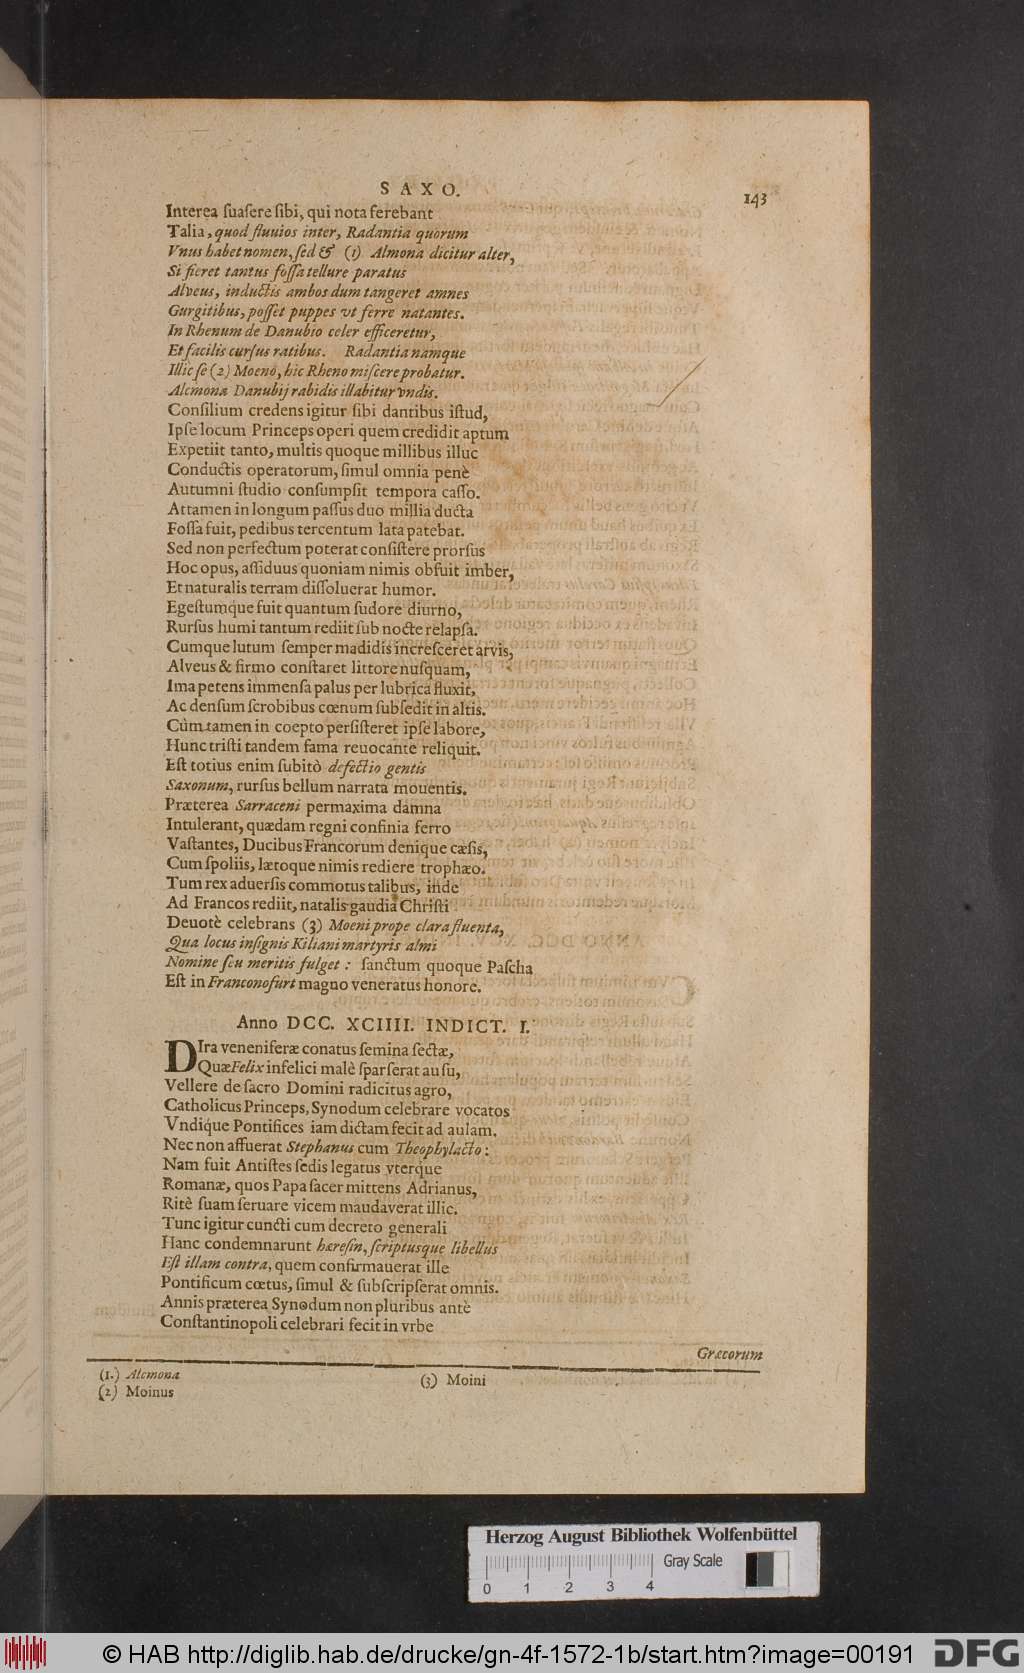 SAXO.
143
Interea ſuaſere ſibi, qui nota ferebant
Talia, quod fluuios inter, Radantia quorum
Vnus habet nomen, ſed & (1) Almona dicitur alter,
Si fieret tantus foſſa tellure paratus
Alveus, inductis ambos dum tangeret amnes
Gurgitibus, poſſet puppes vt ferre natantes.
In Rhenum de Danubio celer efficeretur,
Et facilis curſus ratibus. Radantia namque
Illic ſe (2) Moenò, hic Rheno miſcere probatur.
Alcmona Danubij rabidis illabitur vndis.
Conſilium credens igitur ſibi dantibus iſtud,
Ipſe locum Princeps operi quem credidit aptum
Expetiit tanto, multis quoque millibus illuc
Conductis operatorum, ſimul omnia penè
Autumni ſtudio conſumpſit tempora caſſo.
Attamen in longum paſſus duo millia ducta
Foſſa fuit, pedibus tercentum lata patebat.
Sed non perfectum poterat conſiſtere prorſus
Hoc opus, aſſiduus quoniam nimis obfuit imber,
Et naturalis terram diſſoluerat humor.
Egeſtumque fuit quantum ſudore diurno,
Rurſus humi tantum rediit ſub nocte relapſa.
Cumque lutum ſemper madidis increſceret arvis,
Alveus & firmo conſtaret littore nuſquam,
Ima petens immenſa palus per lubrica fluxit,
Ac denſum ſcrobibus cœnum ſubſedit in altis.
Cùm tamen in coepto perſiſteret ipſe labore,
Hunc triſti tandem fama reuocante reliquit.
Eſt totius enim ſubitò defectio gentis
Saxonum, rurſus bellum narrata mouentis.
Præterea Sarraceni permaxima damna
Intulerant, quædam regni confinia ferro
Vaſtantes, Ducibus Francorum denique cæſis,
Cum ſpoliis, lætoque nimis rediere trophæo.
Tum rex aduerſis commotus talibus, inde
Ad Francos rediit, natalis gaudia Chriſti
Deuotè celebrans (3) Moeni prope clara fluenta,
Qua locus inſignis Kiliani martyris almi
Nomine ſeu meritis fulget: ſanctum quoque Paſcha
Eſt in Franconofurt magno veneratus honore.
Anno DCC. XCIIII. INDICT. I.
DIra veneniferæ conatus ſemina ſectæ,
Quæ Felix infelici malè ſparſerat auſu,
Vellere de ſacro Domini radicitus agro,
Catholicus Princeps, Synodum celebrare vocatos
Vndique Pontifices iam dictam fecit ad aulam.
Nec non affuerat Stephanus cum Theophylacto:
Nam fuit Antiſtes ſedis legatus vterque
Romanæ, quos Papa ſacer mittens Adrianus,
Ritè ſuam ſeruare vicem maudaverat illic.
Tunc igitur cuncti cum decreto generali
Hanc condemnarunt hæreſin, ſcriptusque libellus
Eſt illam contra, quem confirmauerat ille
Pontificum cœtus, ſimul & ſubſcripſerat omnis.
Annis præterea Synodum non pluribus antè
Conſtantinopoli celebrari fecit in vrbe
Græcorum
(1.) Alcmona
(2) Moinus
(3) Moini
Herzog August Bibliothek Wolfenbüttel
Gray Scale
0 1 2 3 4
© HAB http://diglib.hab.de/drucke/gn-4f-1572-1b/start.htm?image=00191
DFG